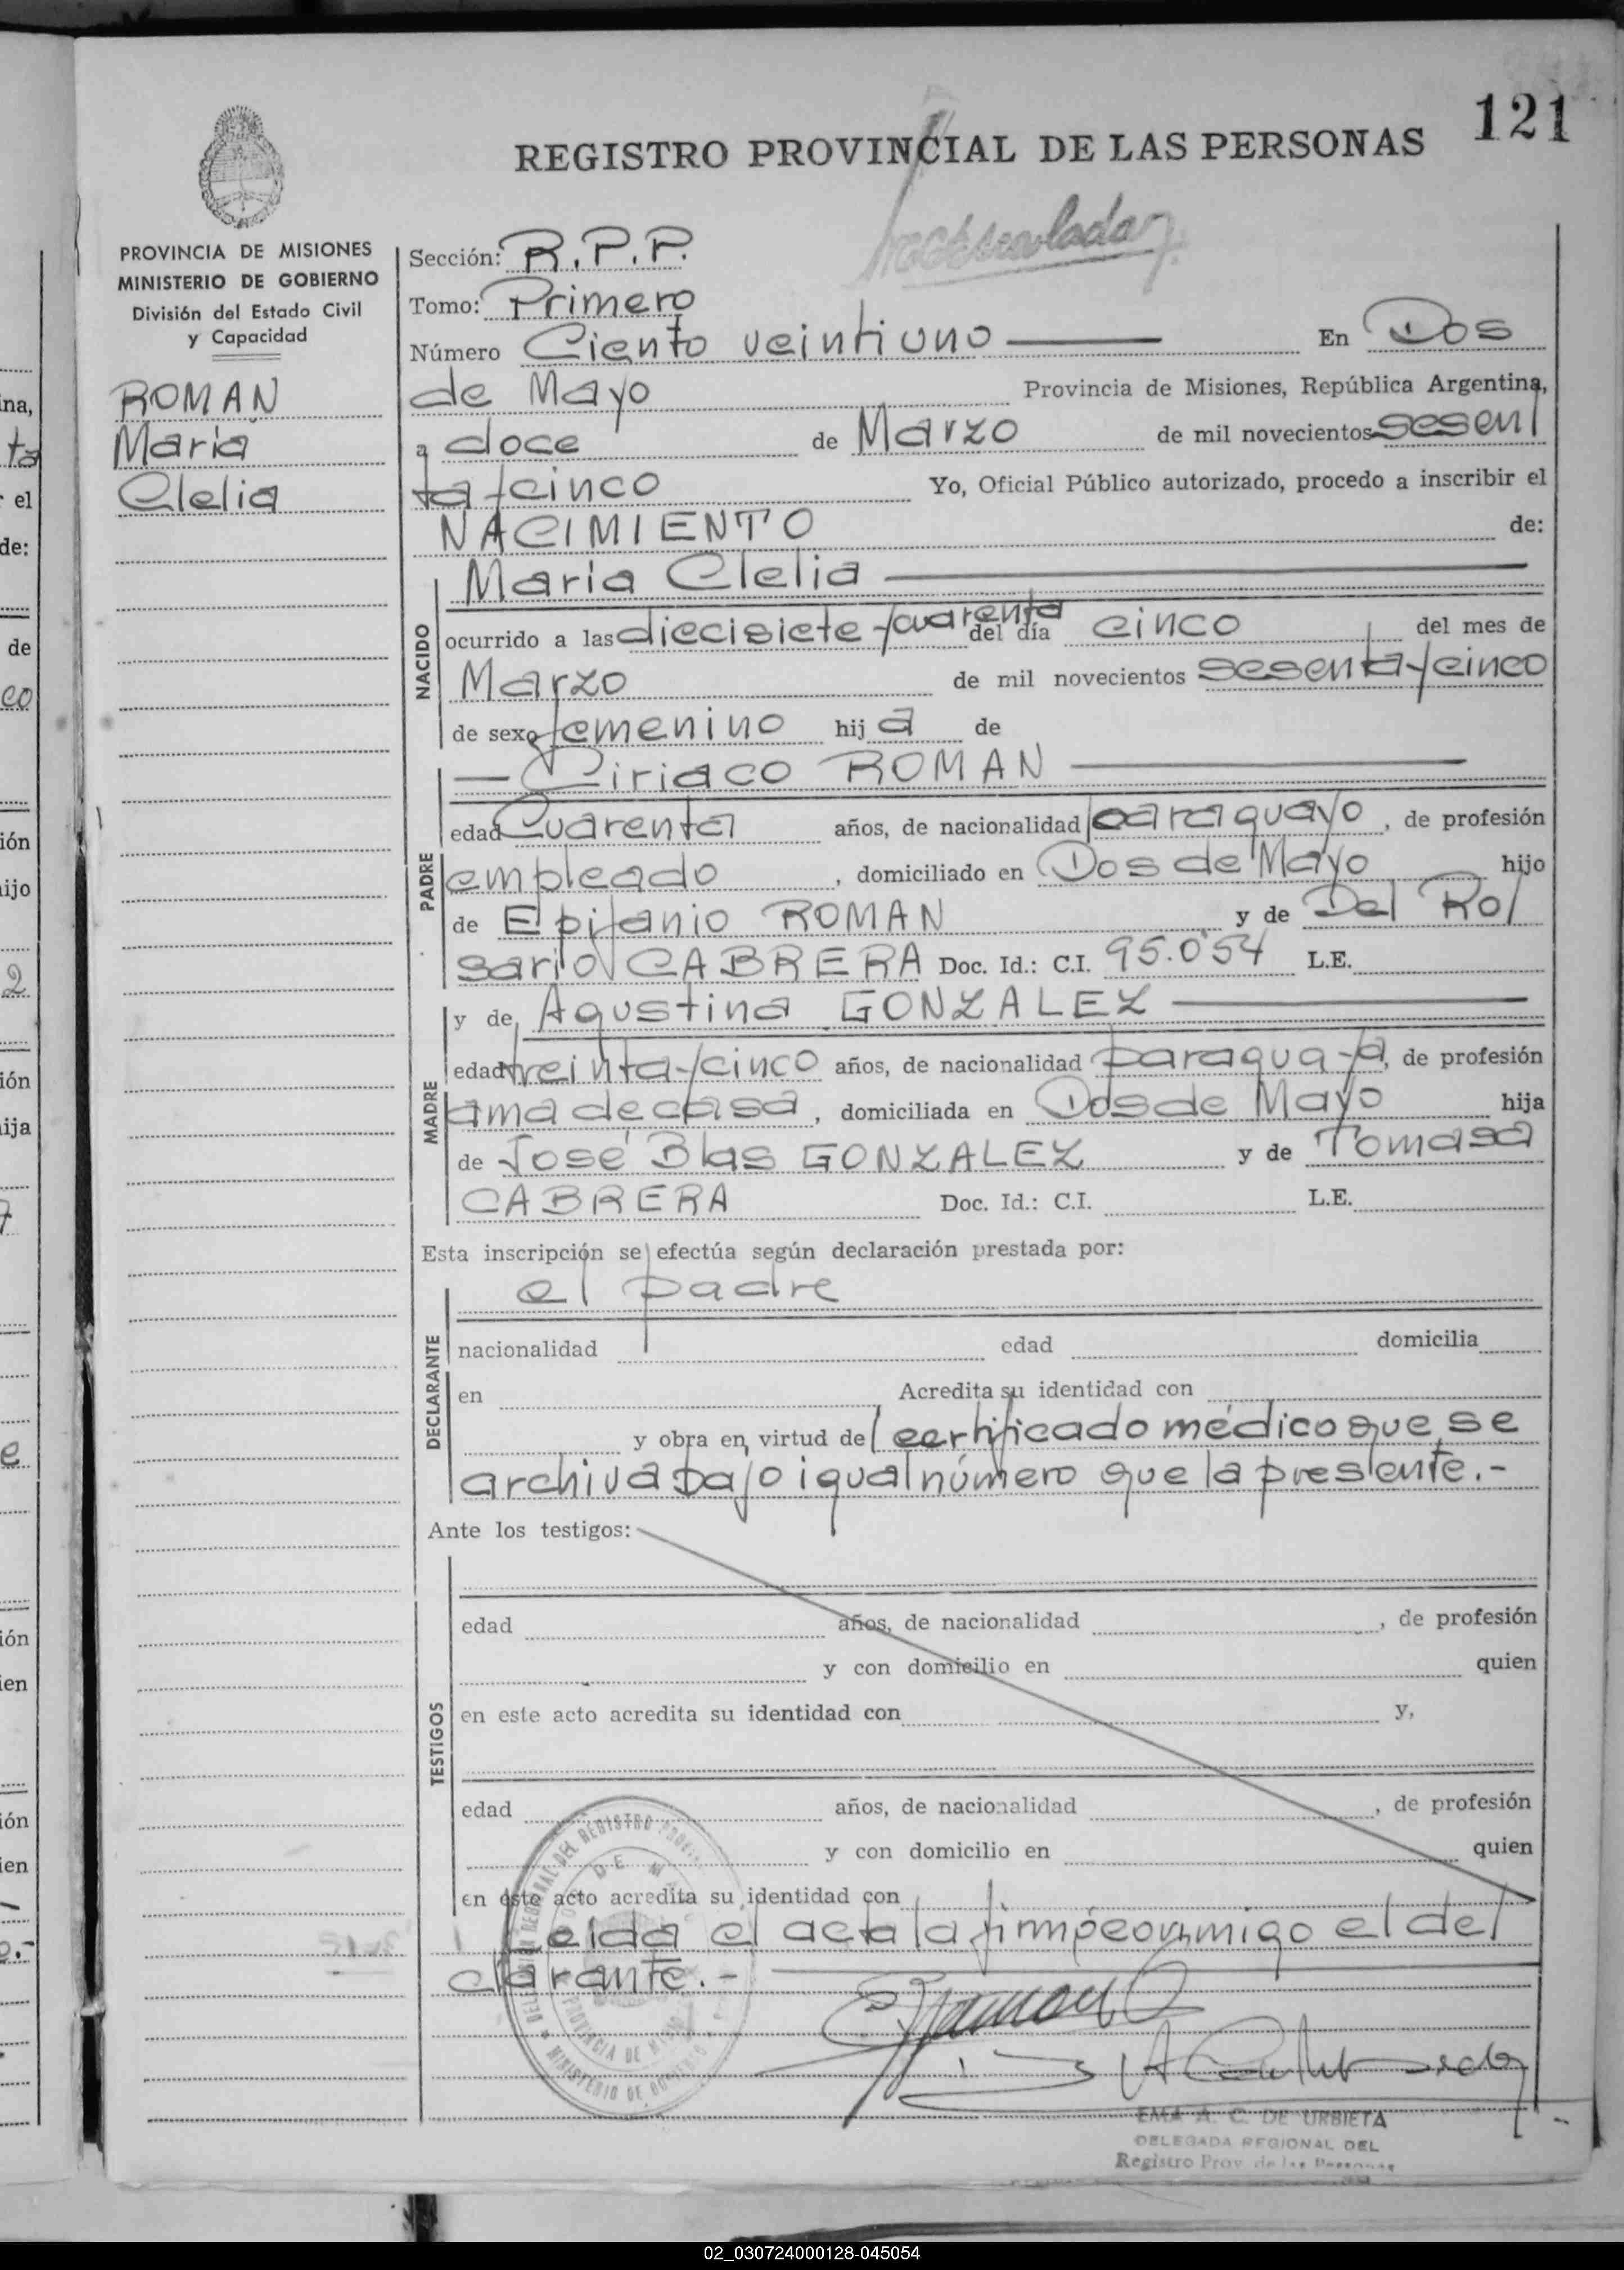 121
REGISTRO PROVINCIAL DE LAS PERSONAS
PROVINCIA DE MISIONES
MINISTERIO DE GOBIERNO
División del Estado Civil
y Capacidad
ROMAN
Maria
Clelia
Sección: R.P.P.
Tomo: Primero
Número Ciento veintiuno En Dos
de Mayo Provincia de Misiones, República Argentina,
a doce de Marzo de mil novecientos sesen
ta y cinco Yo, Oficial Público autorizado, procedo a inscribir el
NACIMIENTO de:
NACIDO
Maria Clelia
ocurrido a las diecisiete y cuarenta del día cinco del mes de
Marzo de mil novecientos sesenta y cinco
de sexo femenino hij a de
PADRE
Ciriaco ROMAN
edad Cuarenta años, de nacionalidad paraguayo, de profesión
empleado, domiciliado en Dos de Mayo hijo
de Epifanio ROMAN y de Del Ro
sario CABRERA Doc. Id.: C.I. 95.054 L.E.
MADRE
y de Agustina GONZALEZ
edad treinta y cinco años, de nacionalidad paraguaya, de profesión
ama de casa, domiciliada en Dos de Mayo hija
de José Blas GONZALEZ y de Tomasa
CABRERA Doc. Id.: C.I. L.E.
Esta inscripción se efectúa según declaración prestada por:
DECLARANTE
el padre
nacionalidad edad domicilia
en Acredita su identidad con
y obra en virtud de certificado médico que se
archiva bajo igual número que la presente.-
Ante los testigos:
TESTIGOS
edad años, de nacionalidad , de profesión
y con domicilio en quien
en este acto acredita su identidad con y,
edad años, de nacionalidad , de profesión
y con domicilio en quien
en este acto acredita su identidad con
Leida el acta la firmó conmigo el de
clarante.-
EMA A. C. DE URBIETA
DELEGADA REGIONAL DEL
Registro Prov. de las Personas
02_030724000128-045054